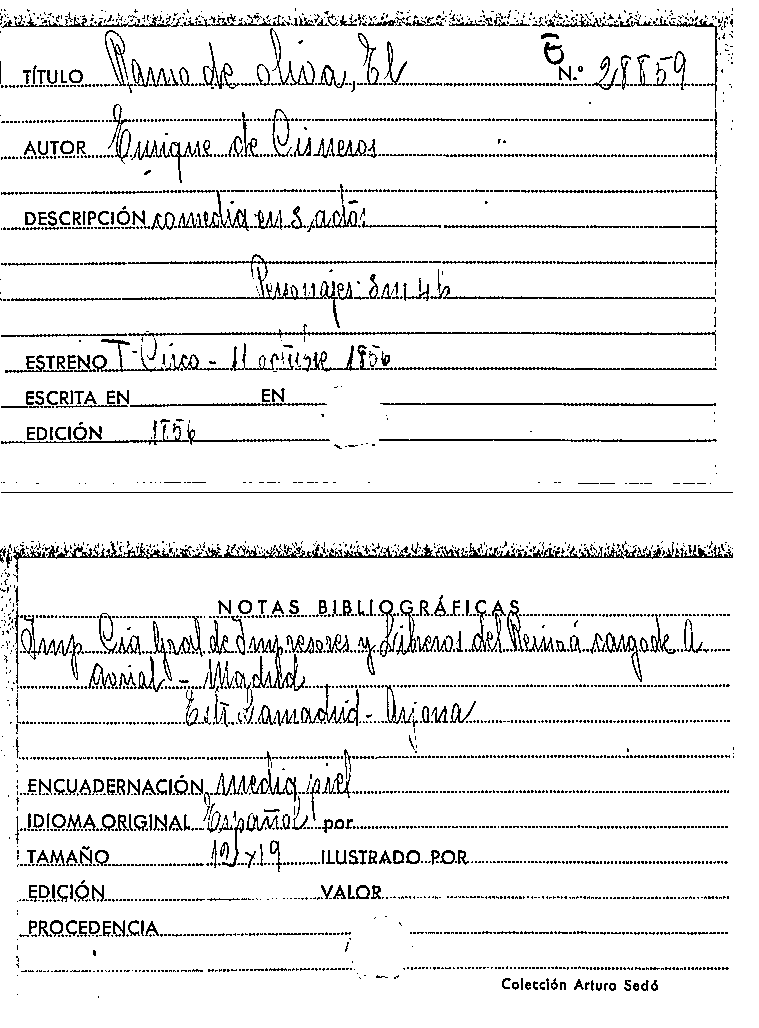 TÍTULO Ramo de oliva, El N.º 28859
AUTOR Enrique de Cisneros
DESCRIPCIÓN comedia en 3 actos
Personajes: 8m 4h
ESTRENO T. Circo - 11 octubre 1856
ESCRITA EN EN
EDICIÓN 1856
NOTAS BIBLIOGRÁFICAS
Imp Cia Gral de Impresores y Libreros del Reino á cargo de A
Avrial - Madrid
Estr Samadrid - Arjona
ENCUADERNACIÓN media piel
IDIOMA ORIGINAL Español por
TAMAÑO 12 x 19 ILUSTRADO POR
EDICIÓN VALOR
PROCEDENCIA
Colección Arturo Sedó